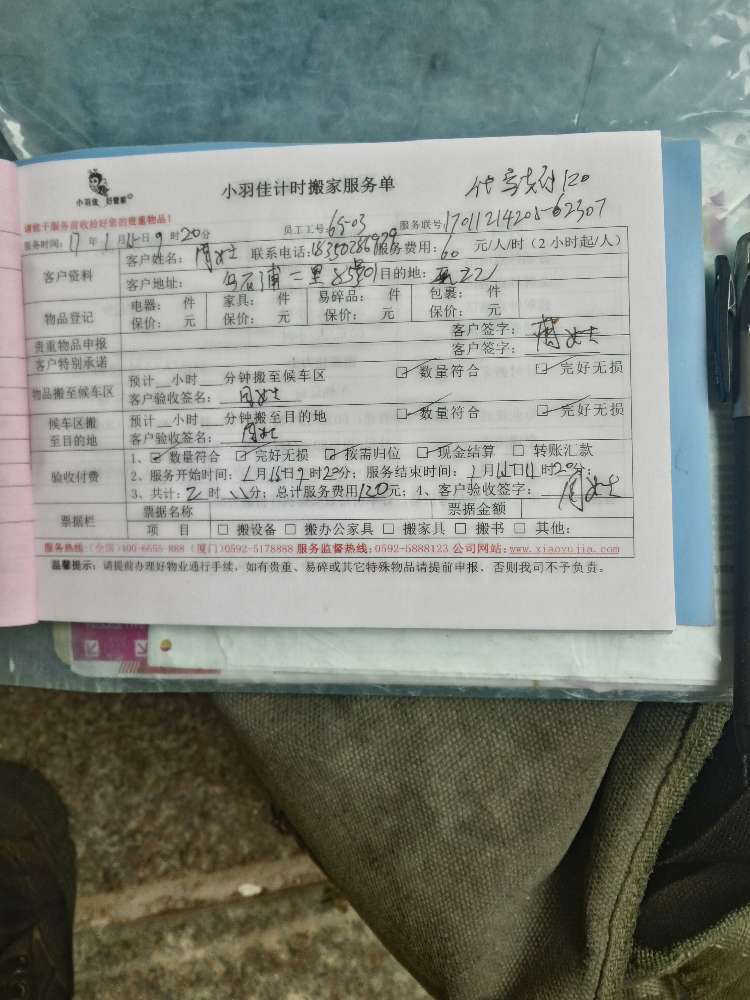 小羽佳 好管家
小羽佳计时搬家服务单
代写支付120
请您于服务前收拾好您的贵重物品!
员工工号: 65-03 服务联号: 17011214205-62307
服务时间: 17 年 1 月 15 日 9 时 20 分
客户资料
客户姓名: 周女士 联系电话: 服务费用: 60 元/人/时(2小时起/人)
客户地址: 乌石浦二里 目的地:
物品登记
电器: 件 家具: 件 易碎品: 件 包裹: 件
保价: 元 保价: 元 保价: 元 保价: 元
贵重物品申报 客户签字:
客户特别承诺 客户签字: 周女士
物品搬至候车区
预计 小时 分钟搬至候车区 数量符合 完好无损
客户验收签名: 周女士
候车区搬至目的地
预计 小时 分钟搬至目的地 数量符合 完好无损
客户验收签名: 周女士
验收付费
1、 数量符合 完好无损 按需归位 现金结算 转账汇款
2、服务开始时间: 1 月 15 日 9 时 20 分; 服务结束时间: 1 月 15 日 11 时 20 分;
3、共计: 2 时 分; 总计服务费用 120 元; 4、客户验收签字: 周女士
票据栏
票据名称 票据金额
项 目 搬设备 搬办公家具 搬家具 搬书 其他:
服务热线:(全国)400-6655-888 (厦门)0592-5178888 服务监督热线:0592-5888123 公司网站:www.xiaoyujia.com
温馨提示: 请提前办理好物业通行手续, 如有贵重、易碎或其它特殊物品请提前申报, 否则我司不予负责。